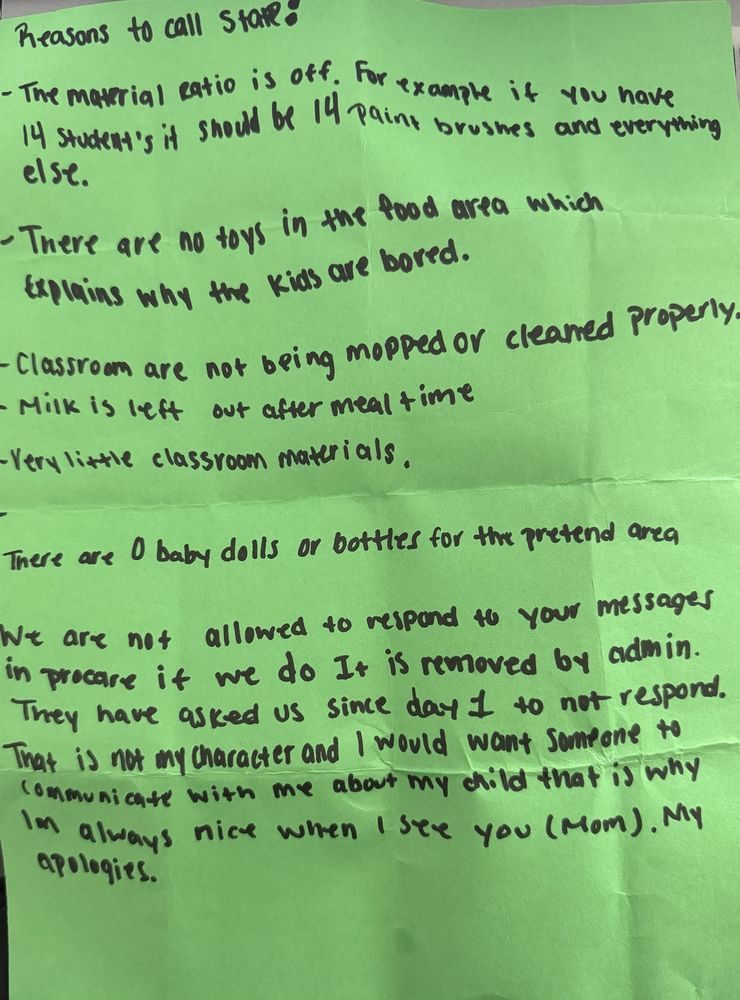 Reasons to call State:
- The material ratio is off. For example if you have
14 Student's it should be 14 paint brushes and everything
else.
- There are no toys in the food area which
Explains why the kids are bored.
- Classroom are not being mopped or cleaned properly.
- Milk is left out after meal time
- Very little classroom materials.
-
There are 0 baby dolls or bottles for the pretend area
We are not allowed to respond to your messages
in procare if we do It is removed by admin.
They have asked us since day 1 to not respond.
That is not my character and I would want someone to
communicate with me about my child that is why
Im always nice when I see you (Mom). My
apologies.